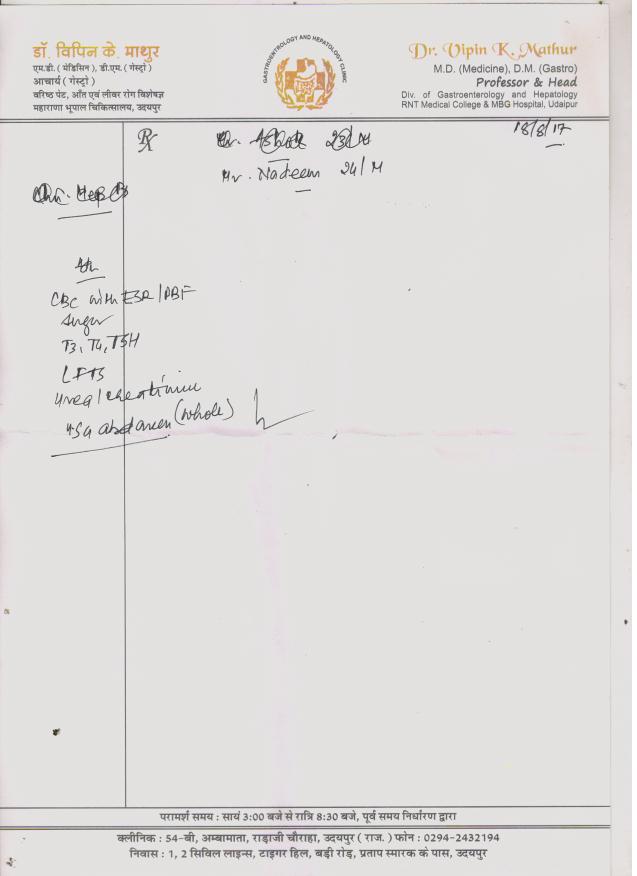 डॉ. विपिन के. माथुर
एम.डी. ( मेडिसिन ), डी.एम. ( गेस्ट्रो )
आचार्य ( गेस्ट्रो )
वरिष्ठ पेट, आँत एवं लीवर रोग विशेषज्ञ
महाराणा भूपाल चिकित्सालय, उदयपुर
GASTROENTROLOGY AND HEPATOLOGY CLINIC
Dr. Vipin K. Mathur
M.D. (Medicine), D.M. (Gastro)
Professor & Head
Div. of Gastroenterology and Hepatology
RNT Medical College & MBG Hospital, Udaipur
18/8/17
Rx
Mr. Nadeem 24/M
CBC with ESR/PBF
Sugar
T3, T4, TSH
LFTS
Urea/creatinine
USG abdomen (whole)
परामर्श समय : सायं 3:00 बजे से रात्रि 8:30 बजे, पूर्व समय निर्धारण द्वारा
क्लीनिक : 54-बी, अम्बामाता, राड़ाजी चौराहा, उदयपुर ( राज. ) फोन : 0294-2432194
निवास : 1, 2 सिविल लाइन्स, टाइगर हिल, बड़ी रोड़, प्रताप स्मारक के पास, उदयपुर